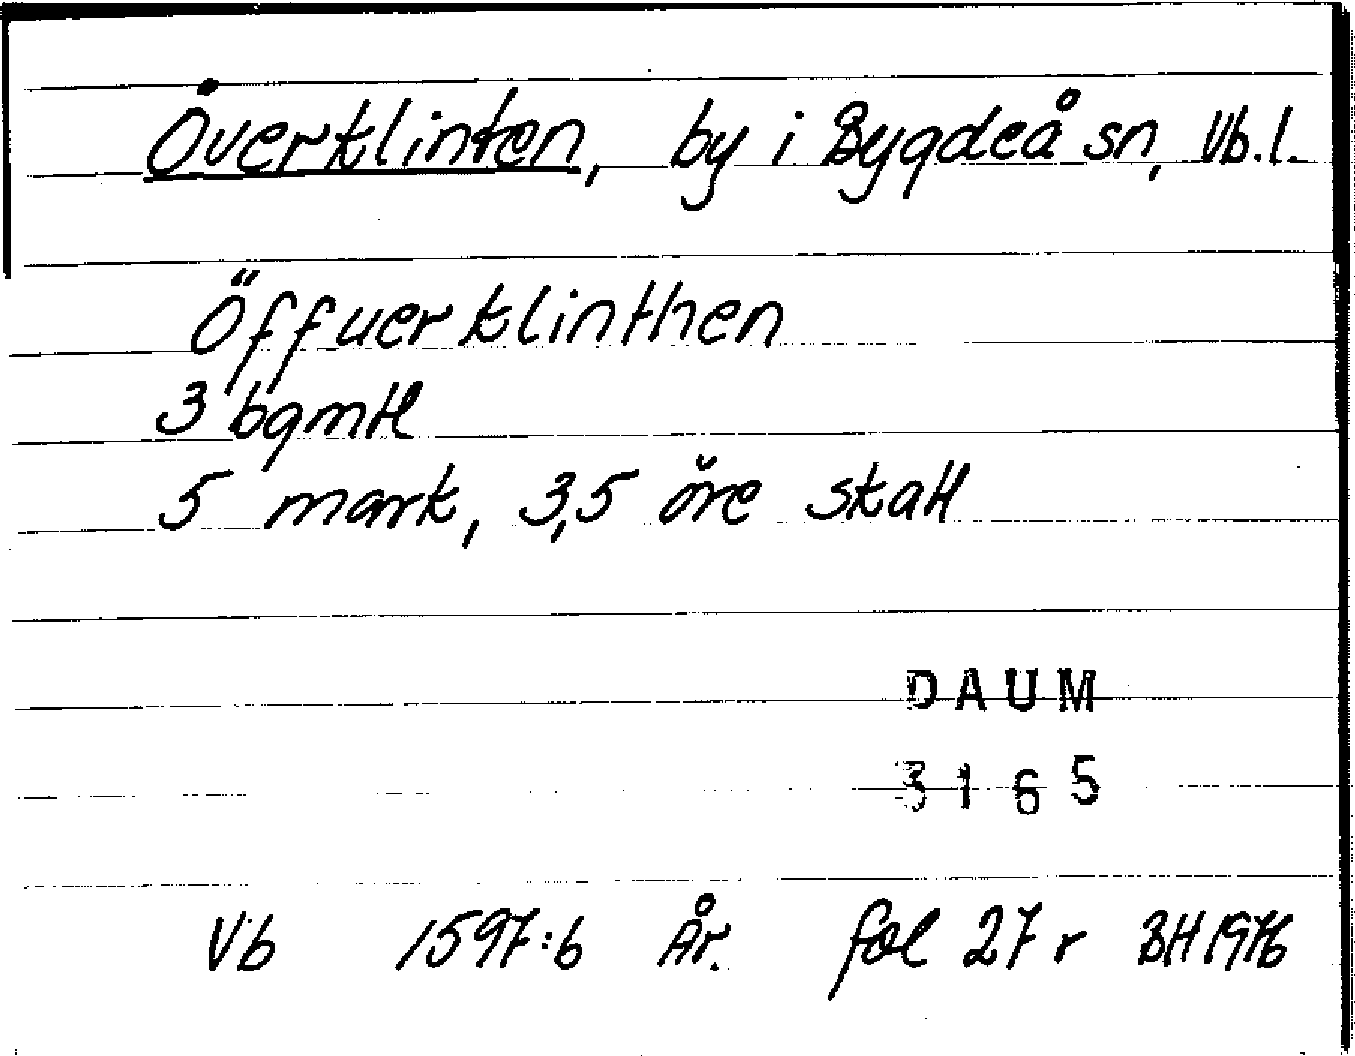 Överklinten, by i Bygdeå sn, Vb.l.
Öffuerklinthen
3 bgmtl
5 mark, 3,5 öre skatt
DAUM
3165
Vb 1597:6 År. fol 27 r BH 1976